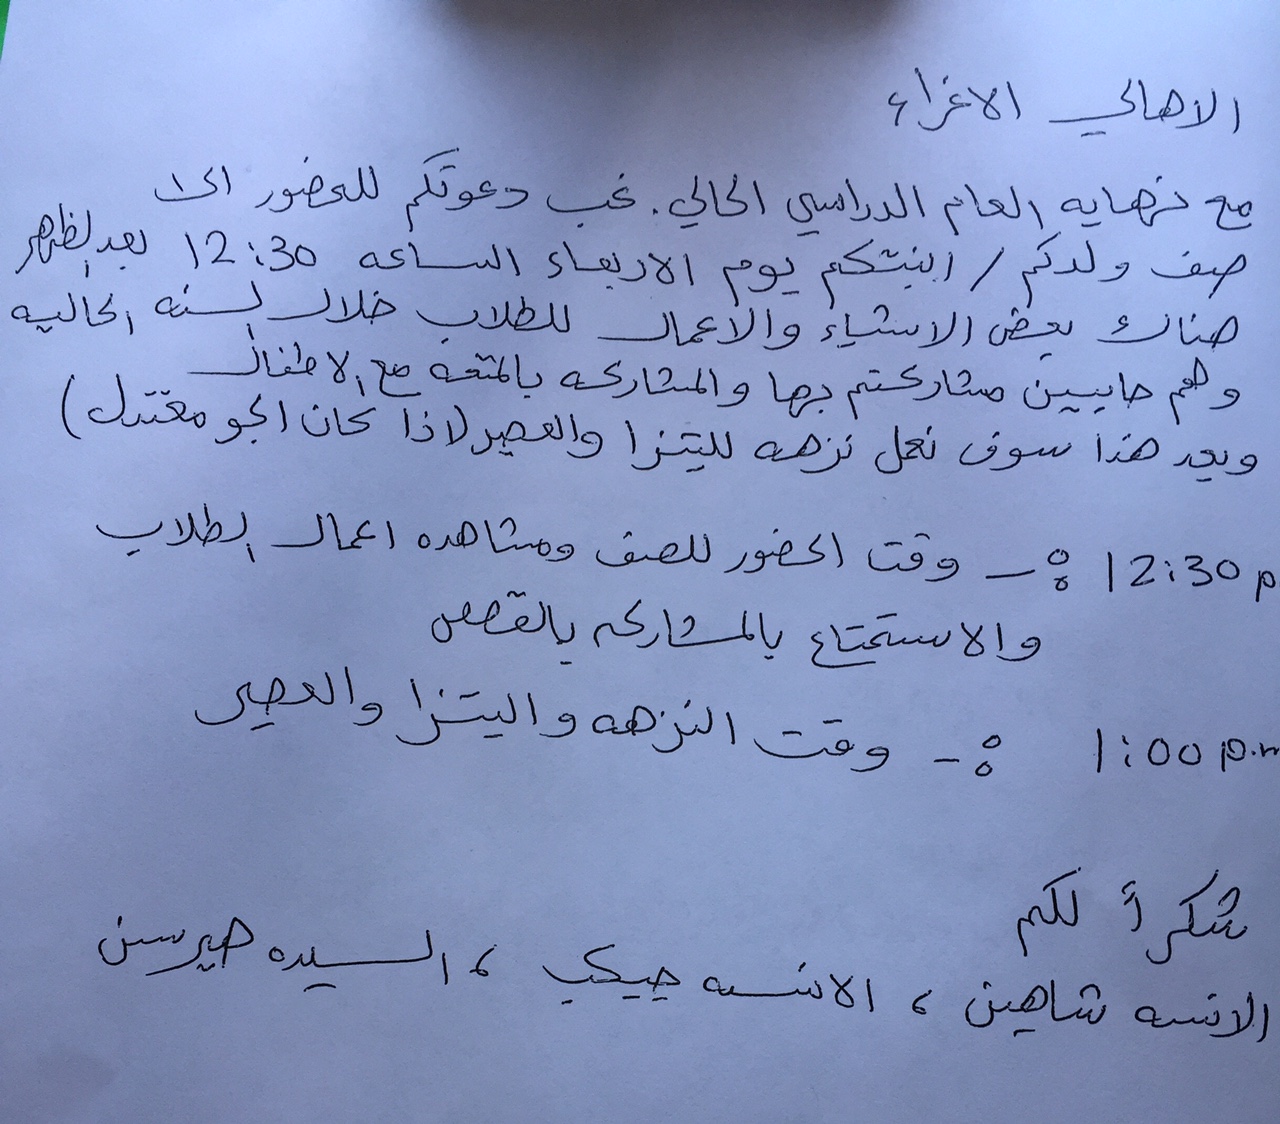 الاهالي الاعزاء
مع نهايه العام الدراسي الحالي. نحب دعوتكم للحضور الى
صف ولدكم / ابنتكم يوم الاربعاء الساعه 12:30 بعد الظهر
هناك بعض الاشياء والاعمال للطلاب خلال السنه الحاليه
وهم حابيين مشاركتم بها والمشاركه بالمتعه مع الاطفال
وبعد هذا سوف نعمل نزهه للبيتزا والعصير (اذا كان الجو معتدل)
12:30 p :- وقت الحضور للصف ومشاهده اعمال الطلاب
والاستمتاع بالمشاركه بالقصص
1:00 p.m :- وقت النزهه والبيتزا والعصير
شكراً لكم
الانسه شاهين ، الانسه جيكب ، السيده هيرسن